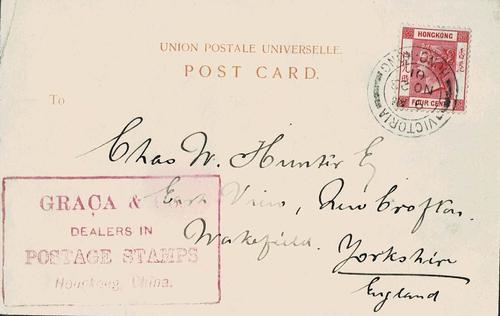 UNION POSTALE UNIVERSELLE.
POST CARD.
HONGKONG
FOUR CENTS
VICTORIA
To
Chas W. Hunter Esq
View, New Crofton.
Wakefield. Yorkshire
England
GRAÇA & Co.
DEALERS IN
POSTAGE STAMPS
Hongkong, China.